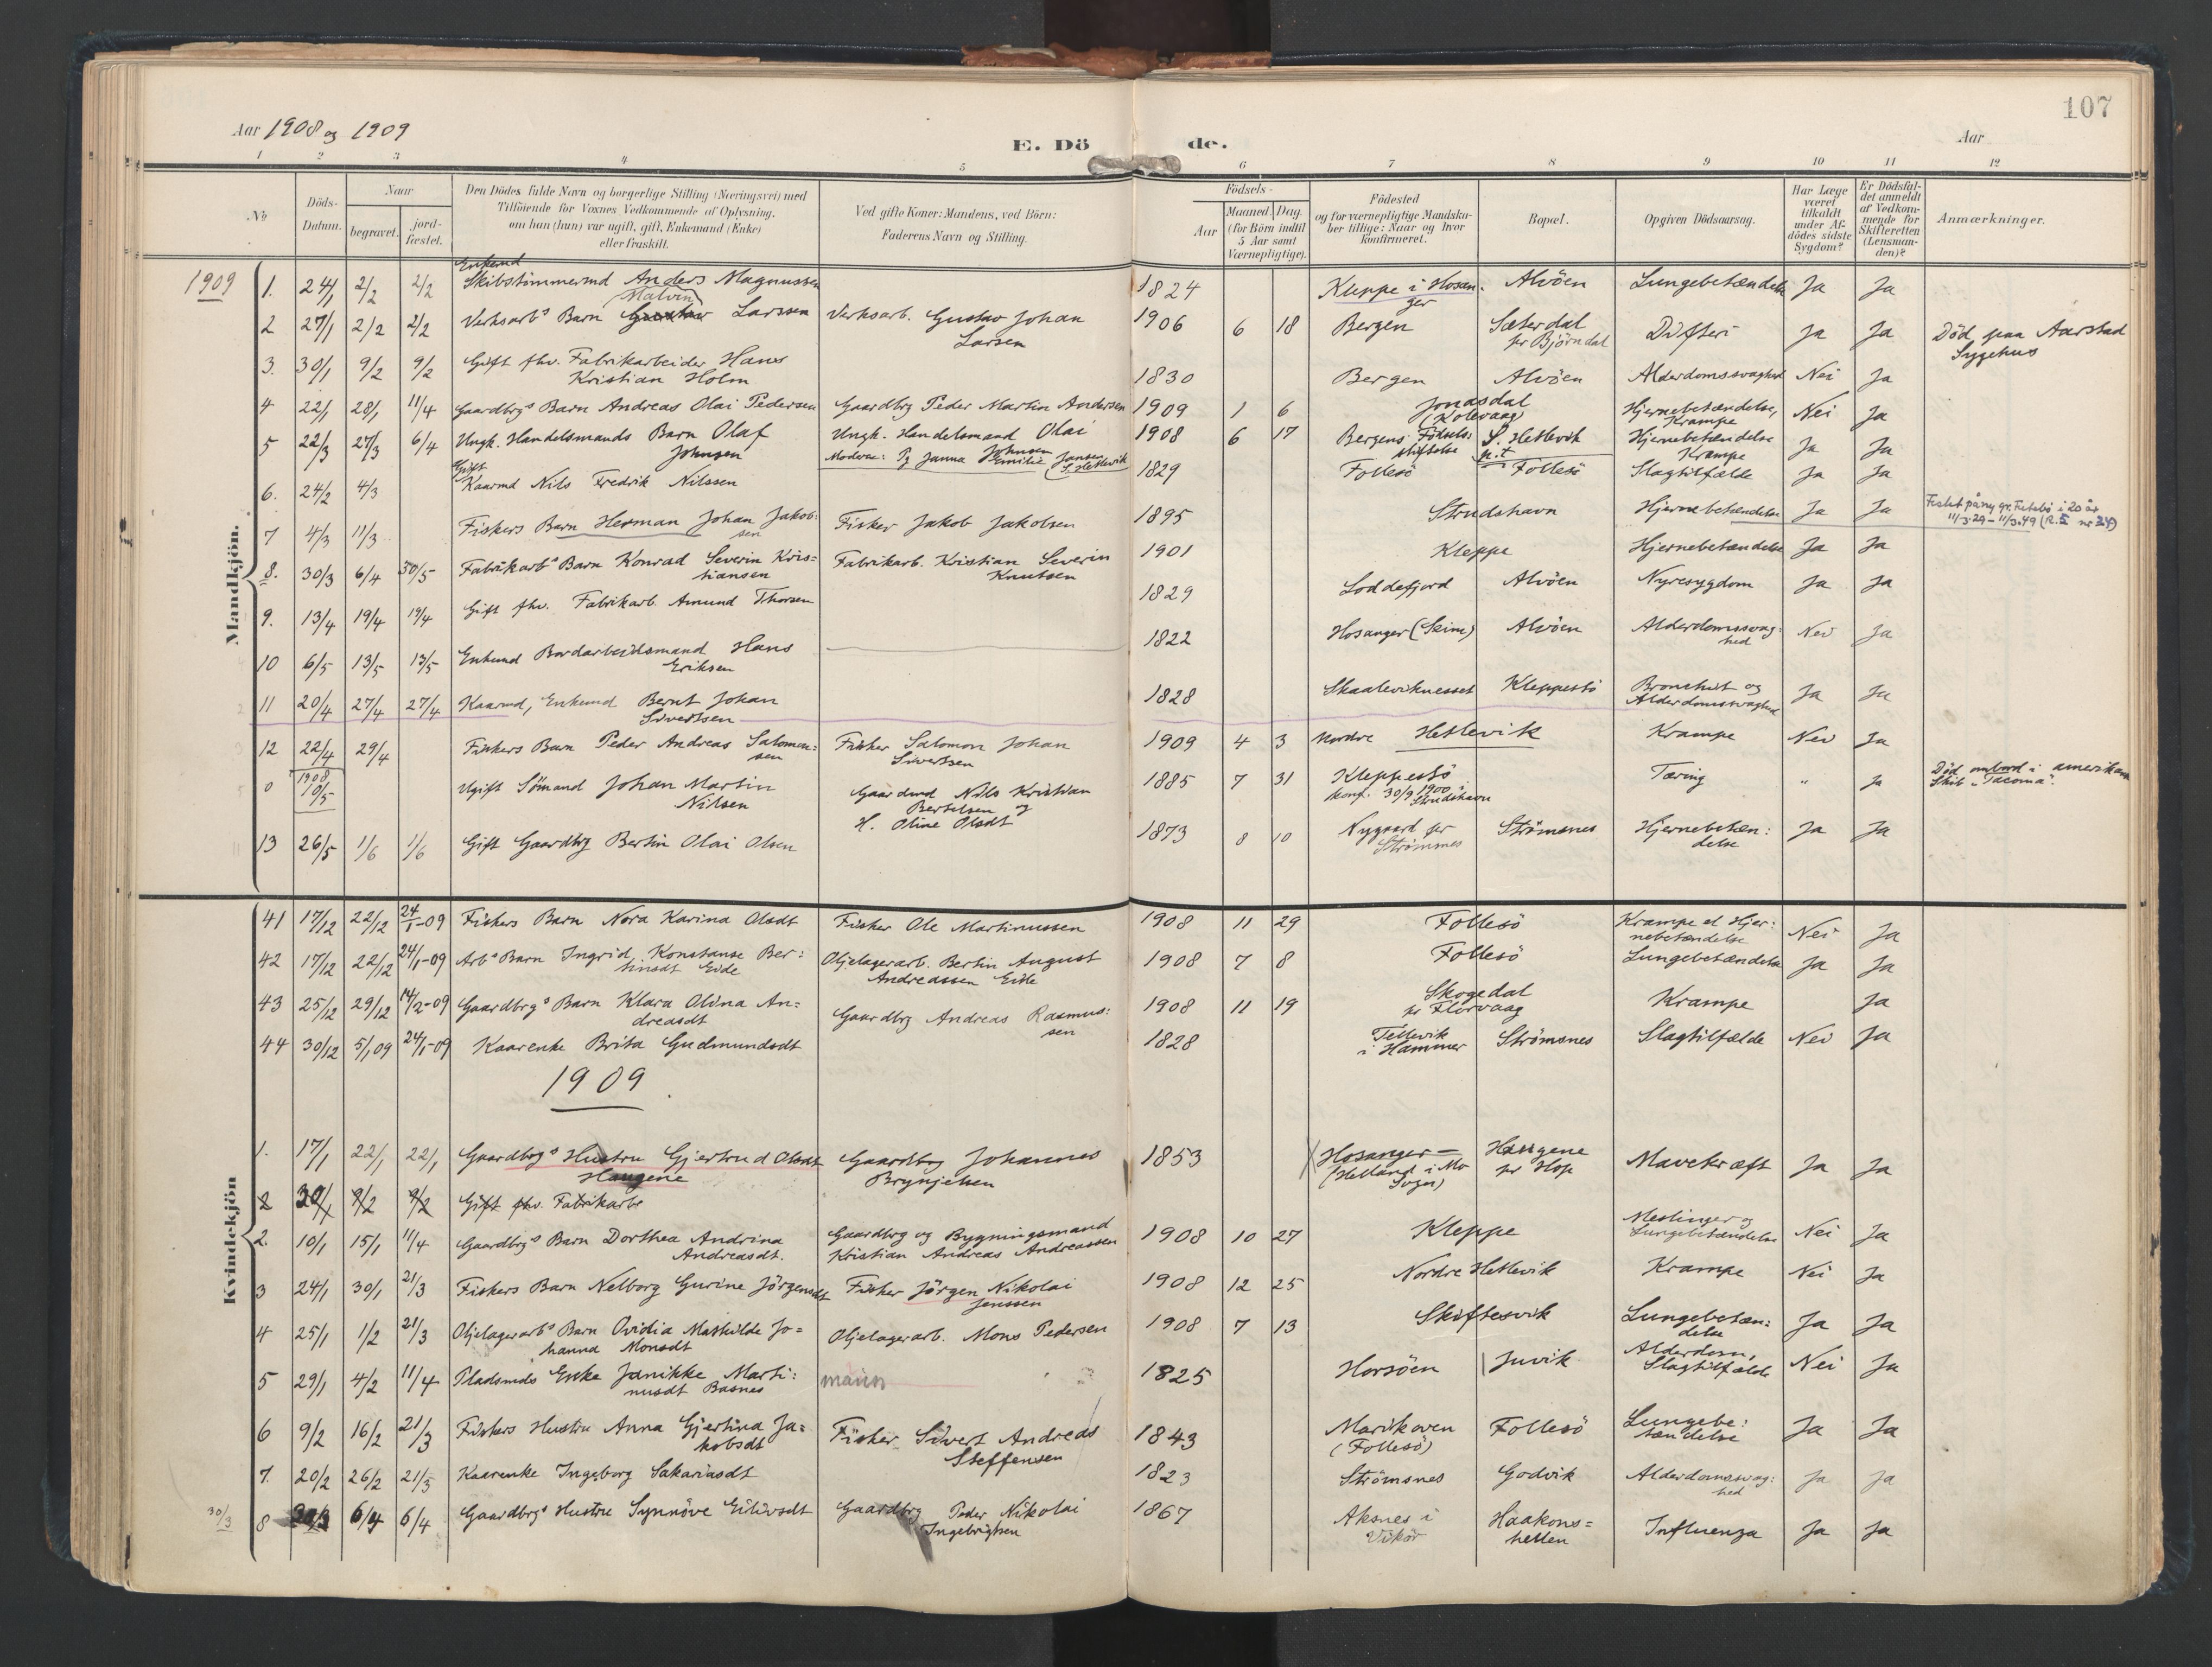 107
Aar 1908 og 1909
E. Dö de.
Aar
1 2 3 4 5 6 7 8 9 10 11 12
No
Döds-Datum.
Naar
begravet.
jord-fæstet.
Den Dödes fulde Navn og borgerlige Stilling (Næringsvei) med
Tilföiende for Voxnes Vedkommende af Oplysning,
om han (hun) var ugift, gift, Enkemand (Enke)
eller fraskilt.
Ved gifte Koner: Mandens, ved Börn:
Faderens Navn og Stilling.
Födsels-
Aar
Maaned Dag.
(for Börn indtil
5 Aar samt
Værnepligtige).
Födested
og for værnepligtige Mandska-
ber tillige: Naar og hvor
konfirmeret.
Bopæl.
Opgiven Dödsaarsag.
Har Læge
været
tilkaldt
under Af-
dödes sidste
Sygdom?
Er Dödsfal-
det anmeldt
af Vedkom-
mende for
Skifteretten
(Lensman-
den)?
Anmærkninger.
Mandkjön.
1909
1. 24/1 2/2 2/2 Enkemd Skibstömmermd Anders Magnussen 1824 Kleppe i Hosanger Alvöen Lungebetændelse Ja Ja
2 27/1 2/2 2/2 Verksarbs Barn Malvin Larssen Verksarb. Gustav Johan Larsen 1906 6 18 Bergen Sæterdal pr Björndal Difteri Ja Ja Död paa Aarstad Sygehus
3. 30/1 9/2 9/2 Gift fhv. Fabrikarbeider Hans Kristian Holm 1830 Bergen Alvöen Alderdomssvaghed Nei Ja
4 22/1 28/1 11/4 Gaardbrgs Barn Andreas Olai Pedersen Gaardbrg Peder Martin Andersen 1909 1 6 Jonasdal (Kolevaag) Hjernebetændelse, Krampe Nei Ja
5 22/3 27/3 6/4 Ungk. Handelsmands Barn Olaf Johnsen Ungk. Handelsmand Olai Johnsen Moderen: Pg Janna Emilie Jansen S. Hetlevik 1908 6 17 Bergens Födselsstiftelse S. Hetlevik p.t Hjernebetændelse Krampe Ja Ja
6. 24/2 4/3 Gift Kaarmd Nils Fredrik Nilssen 1829 Follesö Follesö Slagtilfælde Ja Ja
7 4/3 11/3 Fiskers Barn Herman Johan Jakob:sen Fisker Jakob Jakobsen 1895 Strudshavn Hjernebetændelse Ja Ja Festet på ny gr. Festebö i 20 år 11/3.29 - 11/3.49 (R.I nr 24)
8. 30/3 6/4 30/5 Fabrikarbs Barn Konrad Severin Kris=tiansen Fabrikarb. Kristian Severin Knutsen 1901 Kleppe Hjernebetændelse Ja Ja
9. 13/4 19/4 19/4 Gift fhv. Fabrikarb. Amund Thorsen 1829 Loddefjord Alvöen Nyresygdom Ja Ja
10 6/5 13/5 13/5 Enkemd Bordarbeidsmand Hans Eriksen 1822 Hosanger (Skim) Alvöen Alderdomssvaghed Nei Ja
11 20/4 27/4 27/4 Kaarmd, Enkemd Bernt Johan Sivertsen 1828 Skaaleviknesset Kleppestö Bronchit og Alderdomssvaghed Ja Ja
12 22/4 29/4 Fiskers Barn Peder Andreas Salomon:sen Fisker Salomon Johan Sivertsen 1909 4 3 Nordre Hetlevik Krampe Nei Ja
0 1908 10/5 Ugift Sömand Johan Martin Nilsen Gaardmd Nils Kristian Bertelsen og H. Oline Olsdt 1885 7 31 Kleppestö konf. 30/9 1900 i Strudshavn Tæring " Ja Död ombord i amerikansk Skib "Tacoma".
13 26/5 1/6 1/6 Gift Gaardbrg Bertin Olai Olsen 1873 8 10 Nygaard pr Strömsnes Strömsnes Hjernebetæn:delse Ja Ja
Kvindekjön
41 17/12 22/12 24/1-09 Fiskers Barn Nora Karina Olsdt Fisker Ole Martinussen 1908 11 29 Follesö Krampe el Hjer:nebetændelse Nei Ja
42 17/12 22/12 24/1-09 Arbs Barn Ingrid Konstanse Ber:tinsdt Eide Oljelagerarb. Bertin August Andreassen Eide 1908 7 8 Follesö Lungebetændelse Ja Ja
43 25/12 29/12 14/2-09 Gaardbrgs Barn Klara Olina An=dreasdt Gaardbrg Andreas Rasmus:sen 1908 11 19 Skogedal pr Florvaag Krampe Ja
44 30/12 5/1 09 24/1-09 Kaarenke Brita Gudmundsdt 1828 Tellevik i Hammer Strömsnes Slagtilfælde Nei Ja
1909
1. 17/1 22/1 22/1 Gaardbrgs Hustru Gjertrud Olsdt Haugene Gaardbrg Johannes Brynjelsen 1853 Hosanger - (Helland i Mo Sogn) Haugene pr Hop Mavekræft Ja Ja
2 30/1 9/2 9/2 Gift fhv. Fabrikarb
2. 10/1 15/1 11/4 Gaardbrgs Barn Dorthea Andrina Andreasdt. Gaardbrg og Bygningsmand Kristian Andreas Andreassen 1908 10 27 Kleppe Meslinger og Lungebetændelse Nei Ja
3 24/1 30/1 21/3 Fiskers Barn Nelborg Gurine Jörgensdt Fisker Jörgen Nikolai Jenssen 1908 12 25 Nordre Hetlevik Krampe Nei Ja
4 25/1 1/2 21/3 Oljelagerarbs Barn Ovidia Mathilde Jo=hanna Monsdt Oljelagerarb. Mons Pedersen 1908 7 13 Skiftesvik Lungebetæn:delse Ja Ja
5 29/1 4/2 11/4 Pladsmds Enke Janikke Marti:nusdt Basnes 1825 Horsöen Juvik Alderdom, Slagtilfælde Nei Ja
6 9/2 16/2 21/3 Fiskers Hustru Anna Gjertina Ja=kobsdt Fisker Sivert Andreas Steffensen 1843 Marikoven (Follesö) Follesö Lungebe:tændelse Ja Ja
7. 20/2 26/2 21/3 Kaarenke Ingeborg Sakariasdt 1823 Strömsnes Godvik Alderdomssvag:hed Ja Ja
30/3 8 6/4 6/4 Gaardbrgs Hustru Synnöve Eilivsdt Gaardbrg Peder Nikolai Ingebrigtsen 1867 Aksnes i Vikör Haakons=hellen Influenza Ja Ja